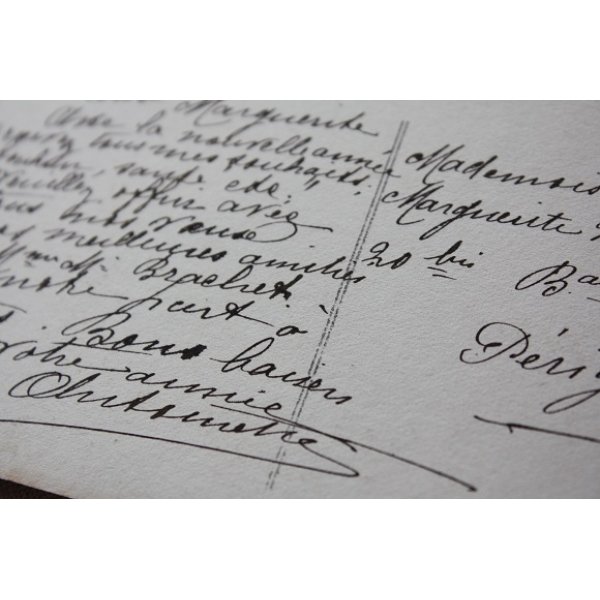 Marguerite
Avec la nouvelle année
tous mes souhaits
santé etc.
Veuillez offrir avec
mes vœux
meilleures amitiés
Mme Brachet
notre part à
Bons baisers
Votre amie
Antoinette
Mademois
Marguerite
20 bis
Ba
Périg